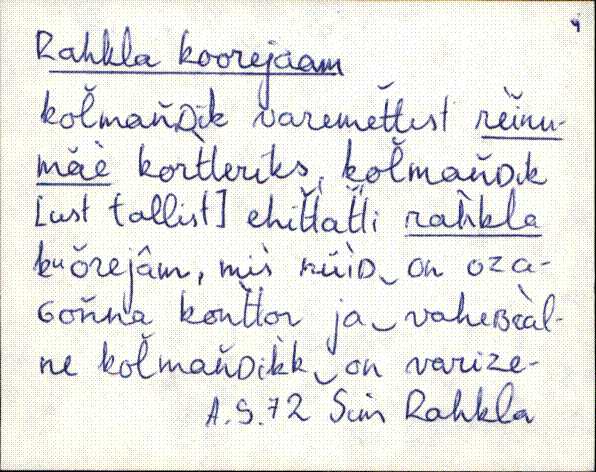 Rahkla koorejaam
kol̆mañᴅik varemet̆t̆ist rĕinu-
măè kort̀leriks, kol̆mañᴅik
[ust tallist] ehit̆t̆at̆t̆i rah̀kla
kᵘŏrejâm, mis̀ nŭiᴅ‿on oza-
ɢoñna kont̆t̆or ja‿vaheʙĕàl-
ne kol̆mañᴅik̀k‿on varize-
A.S.72 Siim Rahkla